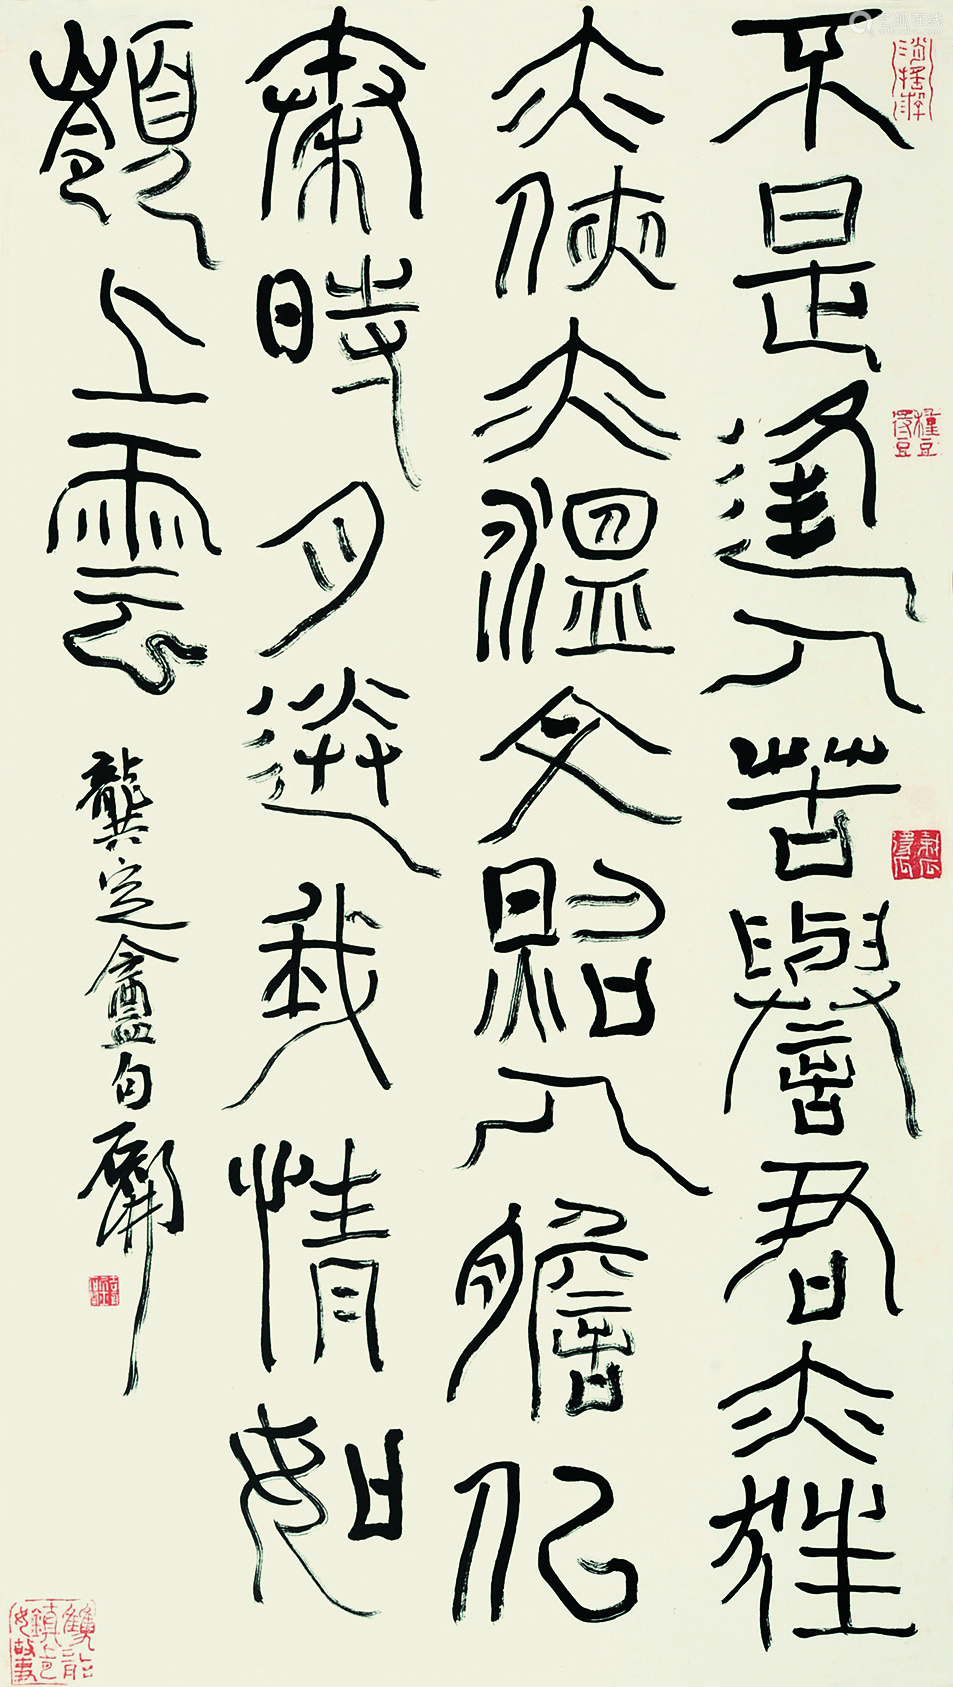 不是逢人苦譽君亦狂
亦俠亦溫文照人膽似
秦時月送我情如
嶺上雲
龔定盦句石開
種豆得豆